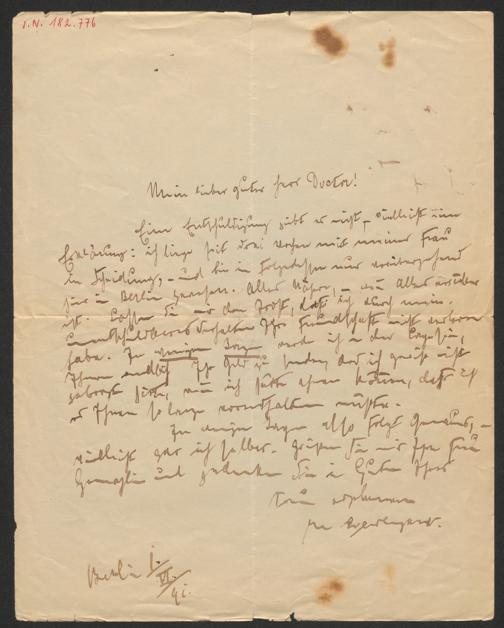 I.N. 182.776
Mein lieber guter Herr Doctor!
Eine Entschuldigung gibt es nicht, vielleicht eine
Erklärung: ich liege seit drei Wochen mit meiner Frau
in Scheidung, – und bin in Folgedessen nur vorübergehend
hier in Berlin gewesen. Alles Nähere, – wenn Alles vorüber
ist. Lassen Sie mir den Trost, daß ich durch mein
unentschuldbares Verhalten Ihre Freundschaft nicht verloren
habe. In wenigen Tagen werde ich in der Lage sein,
Ihnen endlich Ihr Geld zu senden, das ich gewiß nicht
geborgt hätte, wenn ich hätte ahnen können, daß ich
es Ihnen so lange vorenthalten müßte.
In wenigen Tagen also folgt Genaues, –
vielleicht gar ich selber. Grüßen Sie mir Ihre Frau
Gemahlin und gedenken Sie in Güte Ihres
treu ergebenen
Berlin 1.
VI.
91.